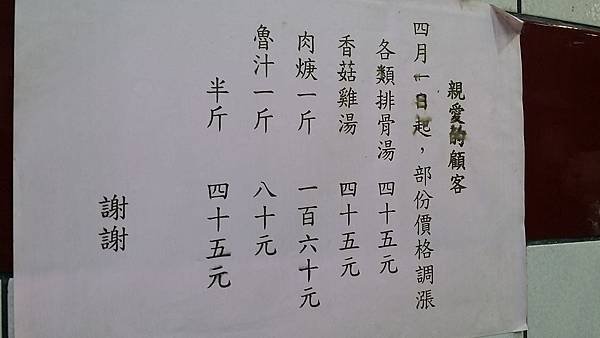 親愛的顧客
四月一日起，部份價格調漲
各類排骨湯 四十五元
香菇雞湯 四十五元
肉焿一斤 一百六十元
魯汁一斤 八十元
半斤 四十五元
謝謝